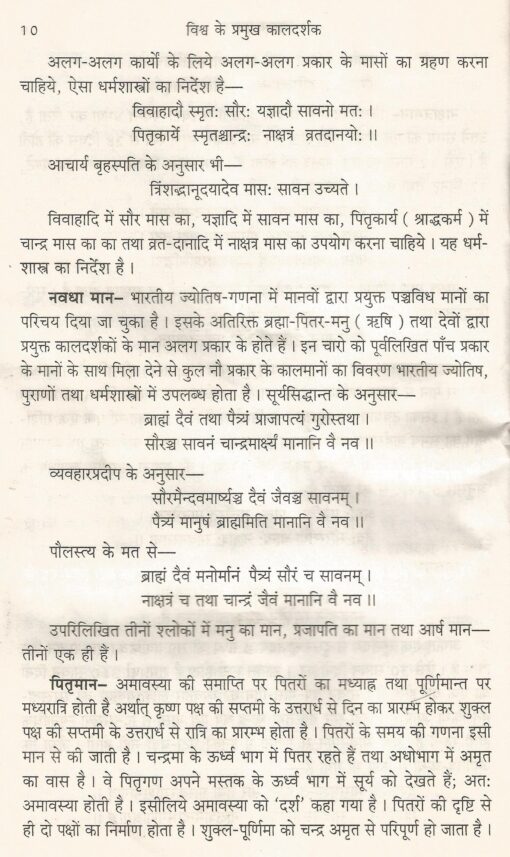 10 विश्व के प्रमुख कालदर्शक
अलग-अलग कार्यों के लिये अलग-अलग प्रकार के मासों का ग्रहण करना
चाहिये, ऐसा धर्मशास्त्रों का निर्देश है—
विवाहादौ स्मृतः सौरः यज्ञादौ सावनो मतः।
पितृकार्ये स्मृतश्चान्द्रः नाक्षत्रं व्रतदानयोः॥
आचार्य बृहस्पति के अनुसार भी—
त्रिंशद्भानूदयादेव मासः सावन उच्यते।
विवाहादि में सौर मास का, यज्ञादि में सावन मास का, पितृकार्य ( श्राद्धकर्म ) में
चान्द्र मास का का तथा व्रत-दानादि में नाक्षत्र मास का उपयोग करना चाहिये। यह धर्म-
शास्त्र का निर्देश है।
नवधा मान– भारतीय ज्योतिष-गणना में मानवों द्वारा प्रयुक्त पञ्चविध मानों का
परिचय दिया जा चुका है। इसके अतिरिक्त ब्रह्मा-पितर-मनु ( ऋषि ) तथा देवों द्वारा
प्रयुक्त कालदर्शकों के मान अलग प्रकार के होते हैं। इन चारो को पूर्वलिखित पाँच प्रकार
के मानों के साथ मिला देने से कुल नौ प्रकार के कालमानों का विवरण भारतीय ज्योतिष,
पुराणों तथा धर्मशास्त्रों में उपलब्ध होता है। सूर्यसिद्धान्त के अनुसार—
ब्राह्मं दैवं तथा पैत्र्यं प्राजापत्यं गुरोस्तथा।
सौरञ्च सावनं चान्द्रमार्क्ष्यं मानानि वै नव॥
व्यवहारप्रदीप के अनुसार—
सौरमैन्दवमार्ष्यञ्च दैवं जैवञ्च सावनम्।
पैत्र्यं मानुषं ब्राह्ममिति मानानि वै नव॥
पौलस्त्य के मत से—
ब्राह्मं दैवं मनोर्मानं पैत्र्यं सौरं च सावनम्।
नाक्षत्रं च तथा चान्द्रं जैवं मानानि वै नव॥
उपरिलिखित तीनों श्लोकों में मनु का मान, प्रजापति का मान तथा आर्ष मान—
तीनों एक ही हैं।
पितृमान– अमावस्या की समाप्ति पर पितरों का मध्याह्न तथा पूर्णिमान्त पर
मध्यरात्रि होती है अर्थात् कृष्ण पक्ष की सप्तमी के उत्तरार्ध से दिन का प्रारम्भ होकर शुक्ल
पक्ष की सप्तमी के उत्तरार्ध से रात्रि का प्रारम्भ होता है। पितरों के समय की गणना इसी
मान से की जाती है। चन्द्रमा के ऊर्ध्व भाग में पितर रहते हैं तथा अधोभाग में अमृत
का वास है। वे पितृगण अपने मस्तक के ऊर्ध्व भाग में सूर्य को देखते हैं; अतः
अमावस्या होती है। इसीलिये अमावस्या को ‘दर्श’ कहा गया है। पितरों की दृष्टि से
ही दो पक्षों का निर्माण होता है। शुक्ल-पूर्णिमा को चन्द्र अमृत से परिपूर्ण हो जाता है।